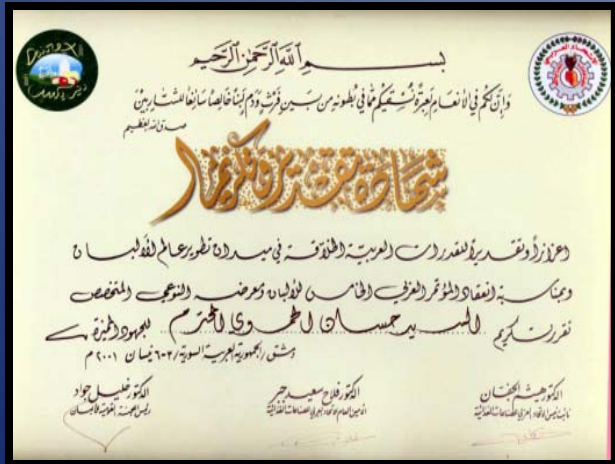 بسم الله الرحمن الرحيم
وإن لكم في الأنعام لعبرة نسقيكم مما في بطونه من بين فرث ودم لبنا خالصا سائغا للشاربين
صدق الله العظيم
شهادة تقدير وتكريم
اعتزازاً وتقديراً للقدرات العربية الخلاقة في ميدان تطوير عالم الألبان
وبمناسبة انعقاد المؤتمر العربي الخامس للألبان ومعرضه النوعي المتخصص
تقرر تكريم السيد حسان الحموي المحترم للجهود المميزة
دمشق / الجمهورية العربية السورية / ٣-٦ نيسان ٢٠٠١ م
الدكتور هيثم الجفان
نائب رئيس الاتحاد العربي للصناعات الغذائية
الدكتور فلاح سعيد جبر
الأمين العام للاتحاد العربي للصناعات الغذائية
الدكتور خليل جواد
رئيس اللجنة العلمية للألبان